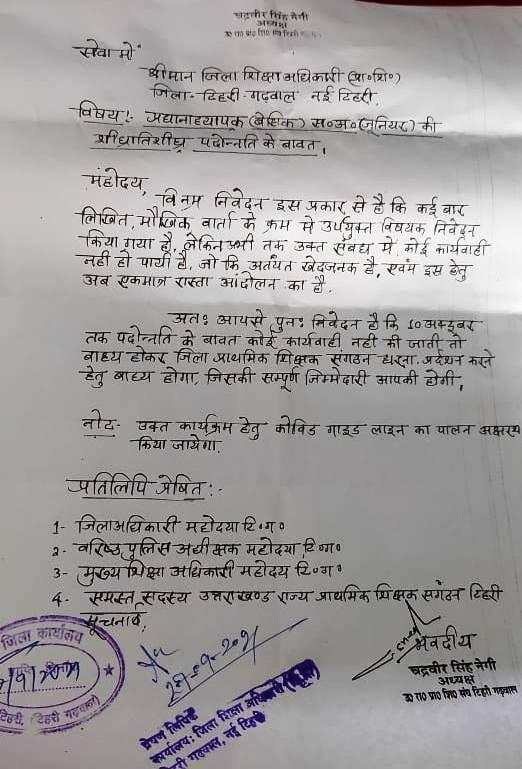 चन्द्रवीर सिंह नेगी
अध्यक्ष
उ० रा० प्रा० शि० संघ टिहरी
सेवा में
श्रीमान जिला शिक्षा अधिकारी (प्रा०शि०)
जिला- टिहरी गढ़वाल नई टिहरी,
विषय:- प्रधानाध्यापक (बेसिक) स०अ० (जूनियर) की
शीघ्रातिशीघ्र पदोन्नति के बावत,
महोदय,
विनम्र निवेदन इस प्रकार से है कि कई बार
लिखित, मौखिक वार्ता के क्रम मे उपर्युक्त विषयक निवेदन
किया गया है, लेकिन अभी तक उक्त संबंध मे कोई कार्यवाही
नही हो पायी है, जो कि अत्यंत खेदजनक है, एवंम इस हेतु
अब एकमात्र रास्ता आंदोलन का है,
अतः आपसे पुनः निवेदन है कि 10 अक्टूबर
तक पदोन्नति के बावत कोई कार्यवाही नही की जाती तो
बाध्य होकर जिला प्राथमिक शिक्षक संगठन धरना प्रर्दशन करने
हेतु बाध्य होगा, जिसकी सम्पूर्ण जिम्मेदारी आपकी होगी,
नोट- उक्त कार्यक्रम हेतु कोविड गाइड लाइन का पालन अक्षरश
किया जायेगा,
प्रतिलिपि प्रेषित:-
1- जिलाअधिकारी महोदया टि०ग०
2- वरिष्ठ पुलिस अधीक्षक महोदया टि०ग०
3- मुख्य शिक्षा अधिकारी महोदय टि०ग०
4- समस्त सदस्य उत्तराखण्ड राज्य प्राथमिक शिक्षक संगठन टिहरी
सूचनार्थ,
भवदीय
चन्द्रवीर सिंह नेगी
अध्यक्ष
उ० रा० प्रा० शि० संघ टिहरी गढ़वाल
जिला कार्यालय
टिहरी, (टिहरी गढ़वाल)
कार्यालय: जिला शिक्षा अधिकारी
टिहरी गढ़वाल, नई टिहरी